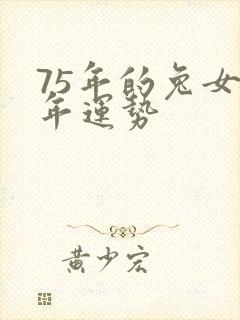 75年的兔女
年運势
黄少宏